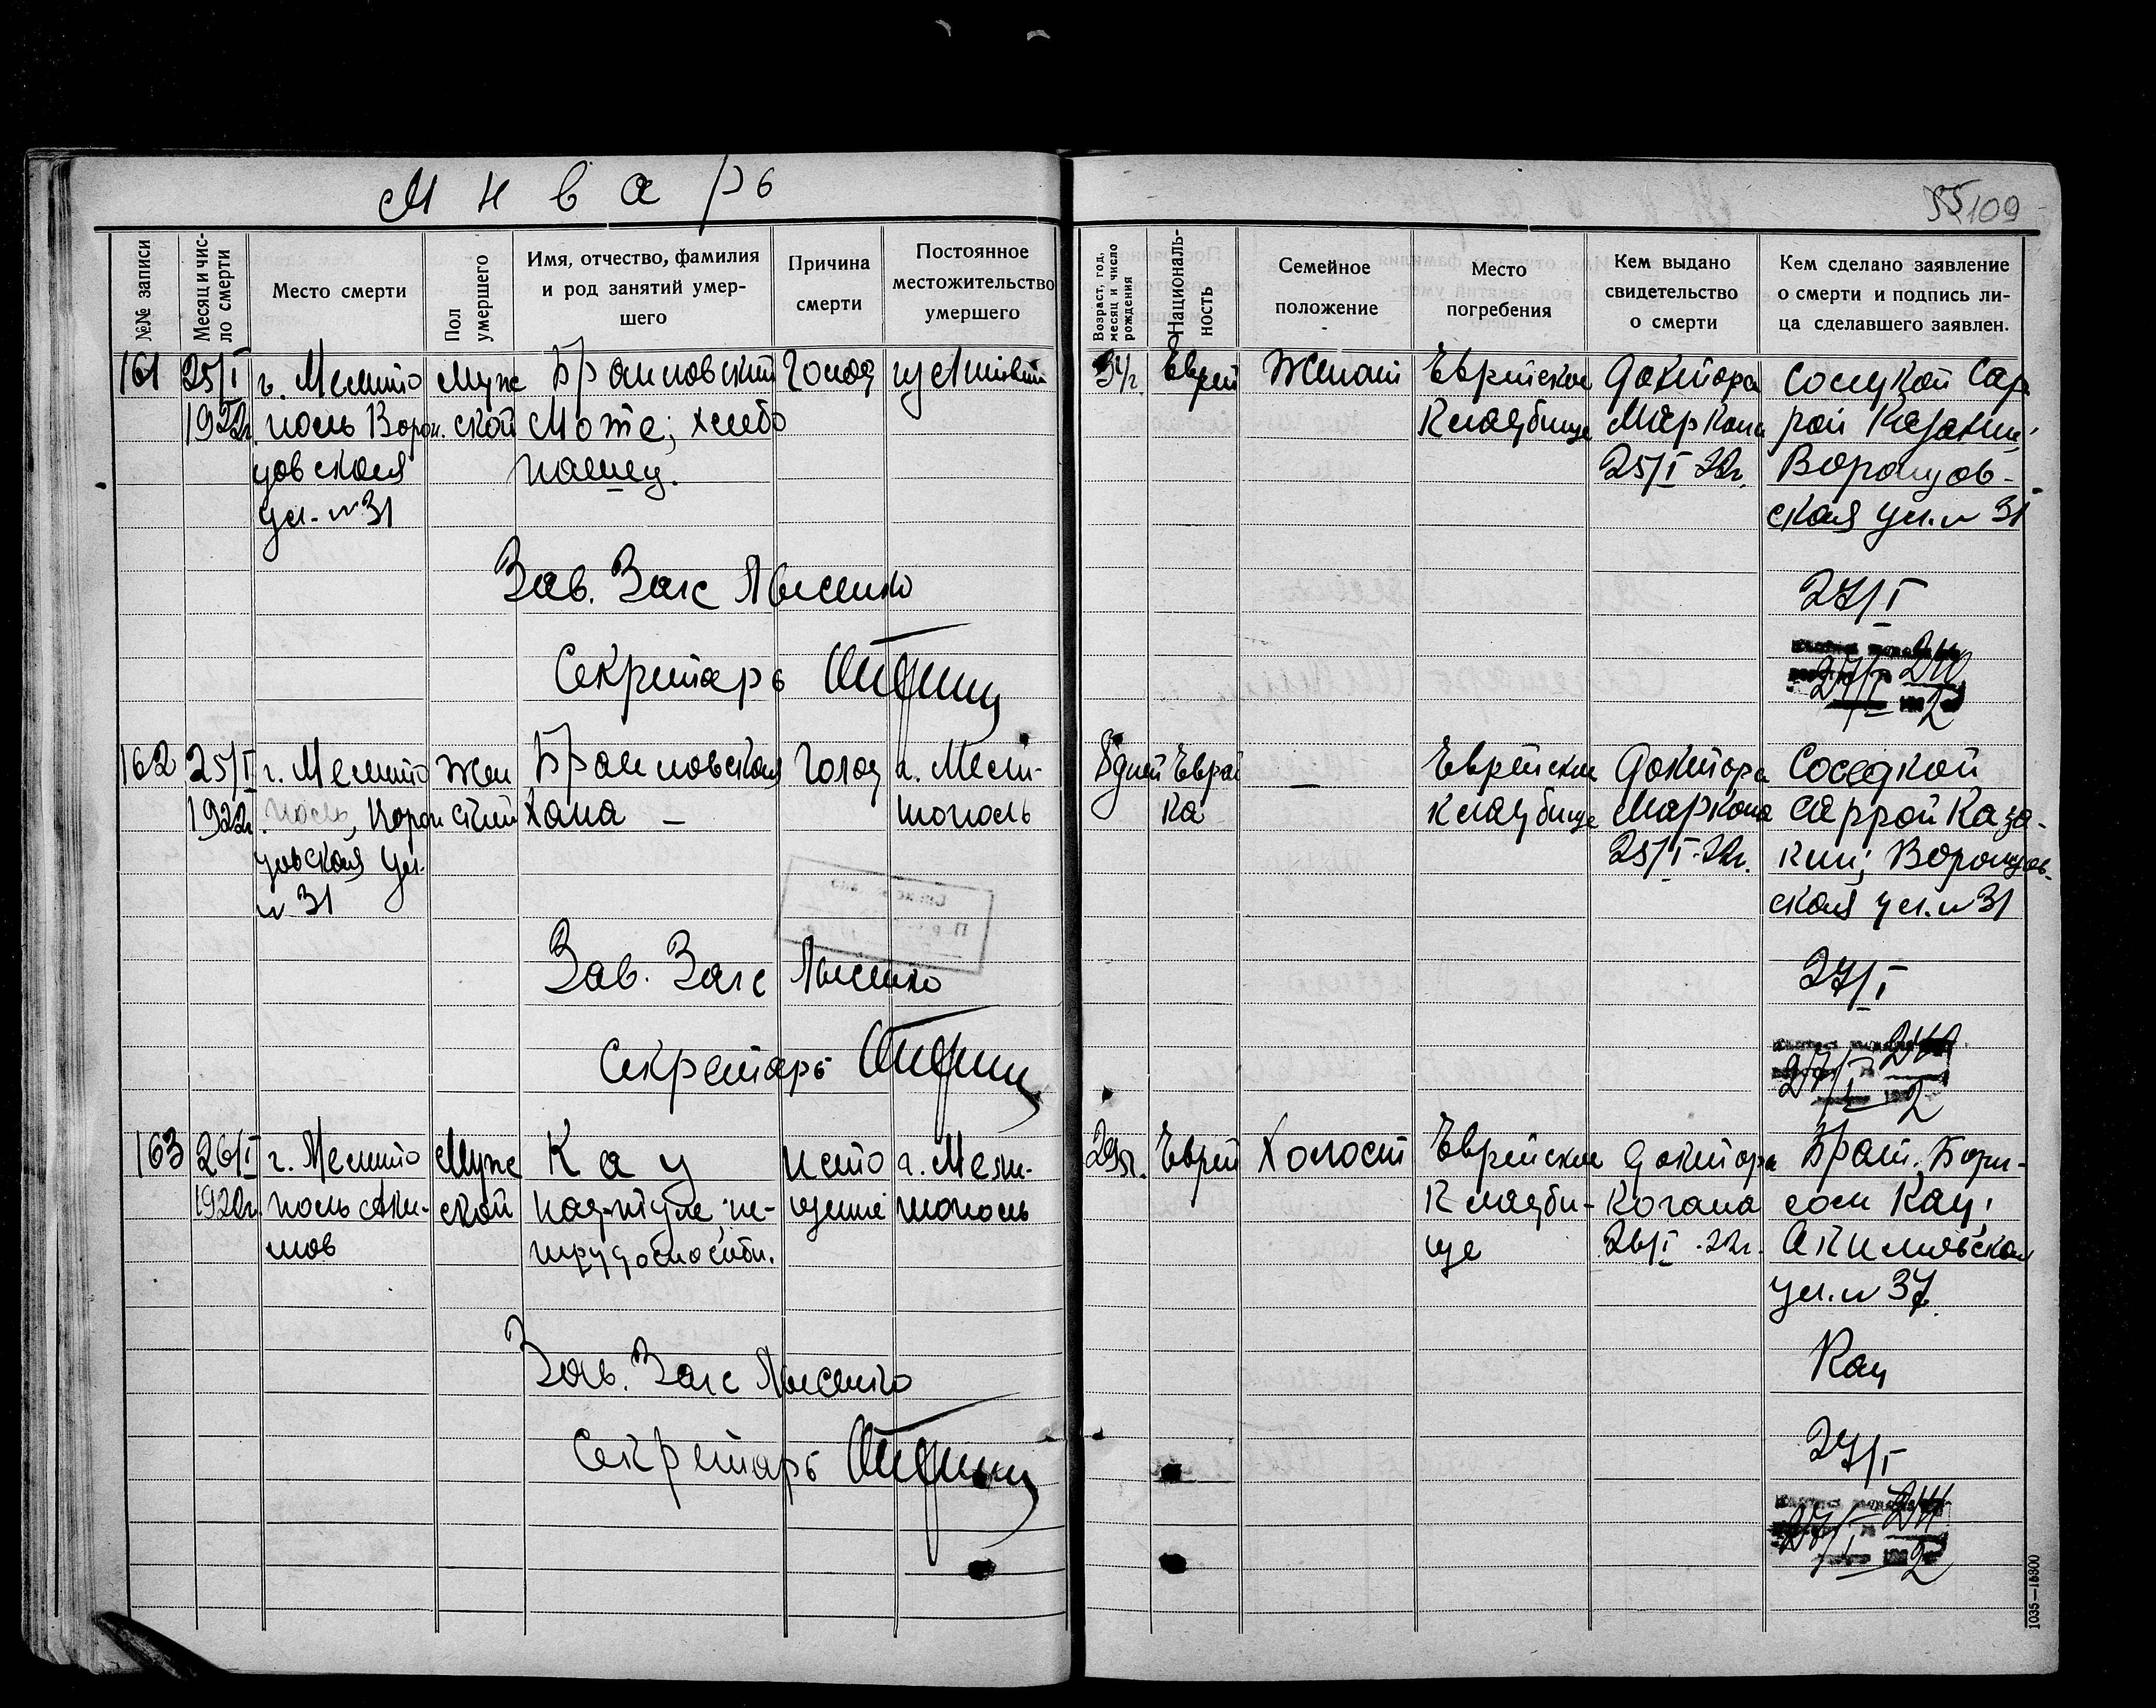 Январь
55 109
№№ записи
Месяц и чис-
ло смерти
Место смерти
Пол
умершего
Имя, отчество, фамилия
и род занятий умер-
шего
Причина
смерти
Постоянное
местожительство
умершего
Возраст, год,
месяц и число
рождения
Националь-
ность
Семейное
положение
Место
погребения
Кем выдано
свидетельство
о смерти
Кем сделано заявление
о смерти и подпись ли-
ца сделавшего заявлен.
161
25/I
1922г.
г. Мелито
поль Ворон
цовская
ул. № 31
Муж
ской
Браиловский
Моте; хлебо
пашец.
Голод
Еврей
Женат
Еврейское
Кладбище
Доктора
Маркона
25/I 22г.
Соседкой Сар
рой Казакин;
Воронцов-
ская ул. № 31
Зав. Загс Лысенко
27/I
Секретарь
27/I 2
162
25/I
1922г.
г. Мелито
поль, Ворон
цовская ул.
№ 31
Жен
ский
Браиловская
Хана —
Голод
г. Мели-
тополь
8 дней
Еврей
ка
—
Еврейское
кладбище
Доктора
Маркона
25/I-22г.
Соседкой
Саррой Каза-
кин; Воронцов-
ская ул. № 31
Зав. Загс Лысенко
27/I
Секретарь
27/I 2
163
26/I
1922г.
г. Мелито
поль Аки-
мов
Муж
ской
Кац
не-
трудоспособн.
Исто
щение
г. Мели-
тополь
29л.
Еврей
Холост
Еврейское
Кладби-
ще
Доктора
Когана
26/I-22г.
Брат. Бори-
сом Кац;
Акимовская
ул. № 37
Кац
Зав. Загс Лысенко
27/I
Секретарь
27/I 2
1035—15800